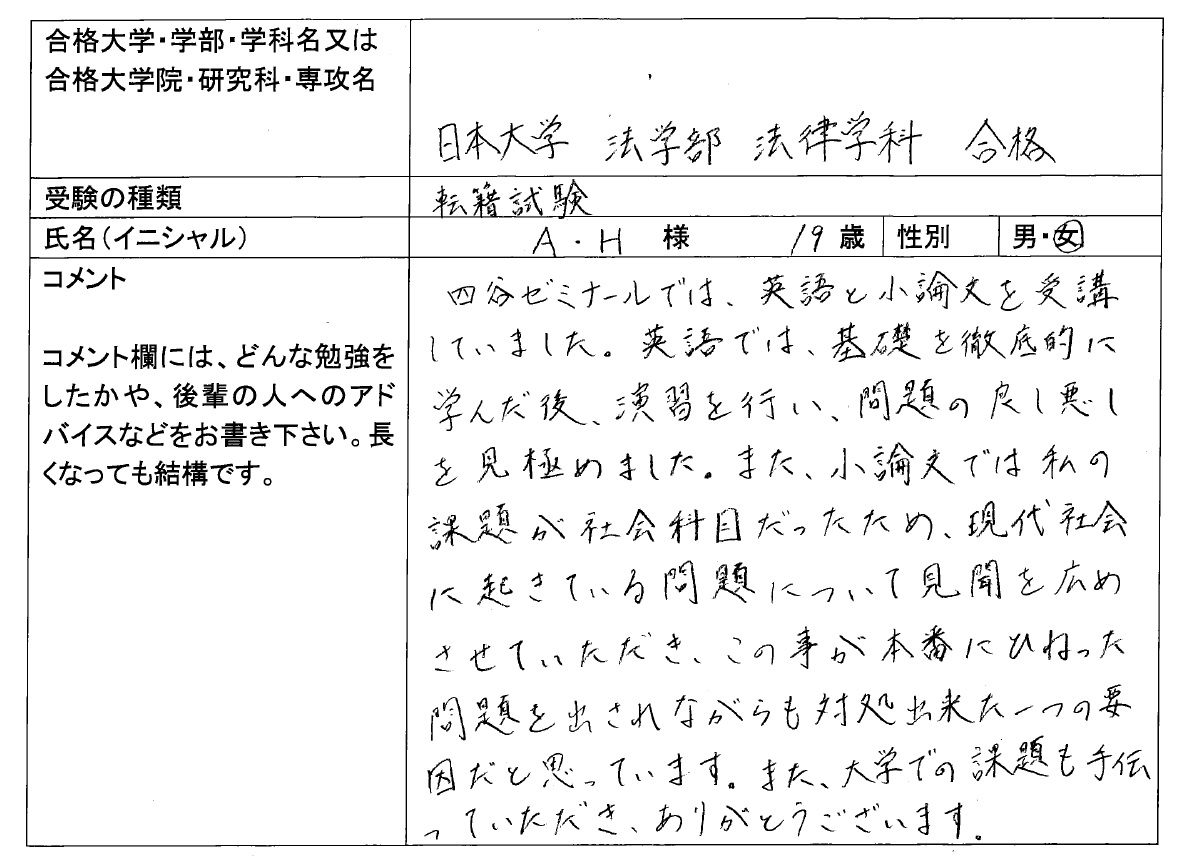 合格大学・学部・学科名又は
合格大学院・研究科・専攻名
日本大学 法学部 法律学科 合格
受験の種類
転籍試験
氏名(イニシャル)
A・H 様 19歳 性別 男・女
コメント
コメント欄には、どんな勉強を
したかや、後輩の人へのアド
バイスなどをお書き下さい。長
くなっても結構です。
四谷ゼミナールでは、英語と小論文を受講
していました。英語では、基礎を徹底的に
学んだ後、演習を行い、問題の良し悪し
を見極めました。また、小論文では私の
課題が社会科目だったため、現代社会
に起きている問題について見聞を広め
させていただき、この事が本番にひねった
問題を出されながらも対処出来た一つの要
因だと思っています。また、大学での課題も手伝
っていただき、ありがとうございます。